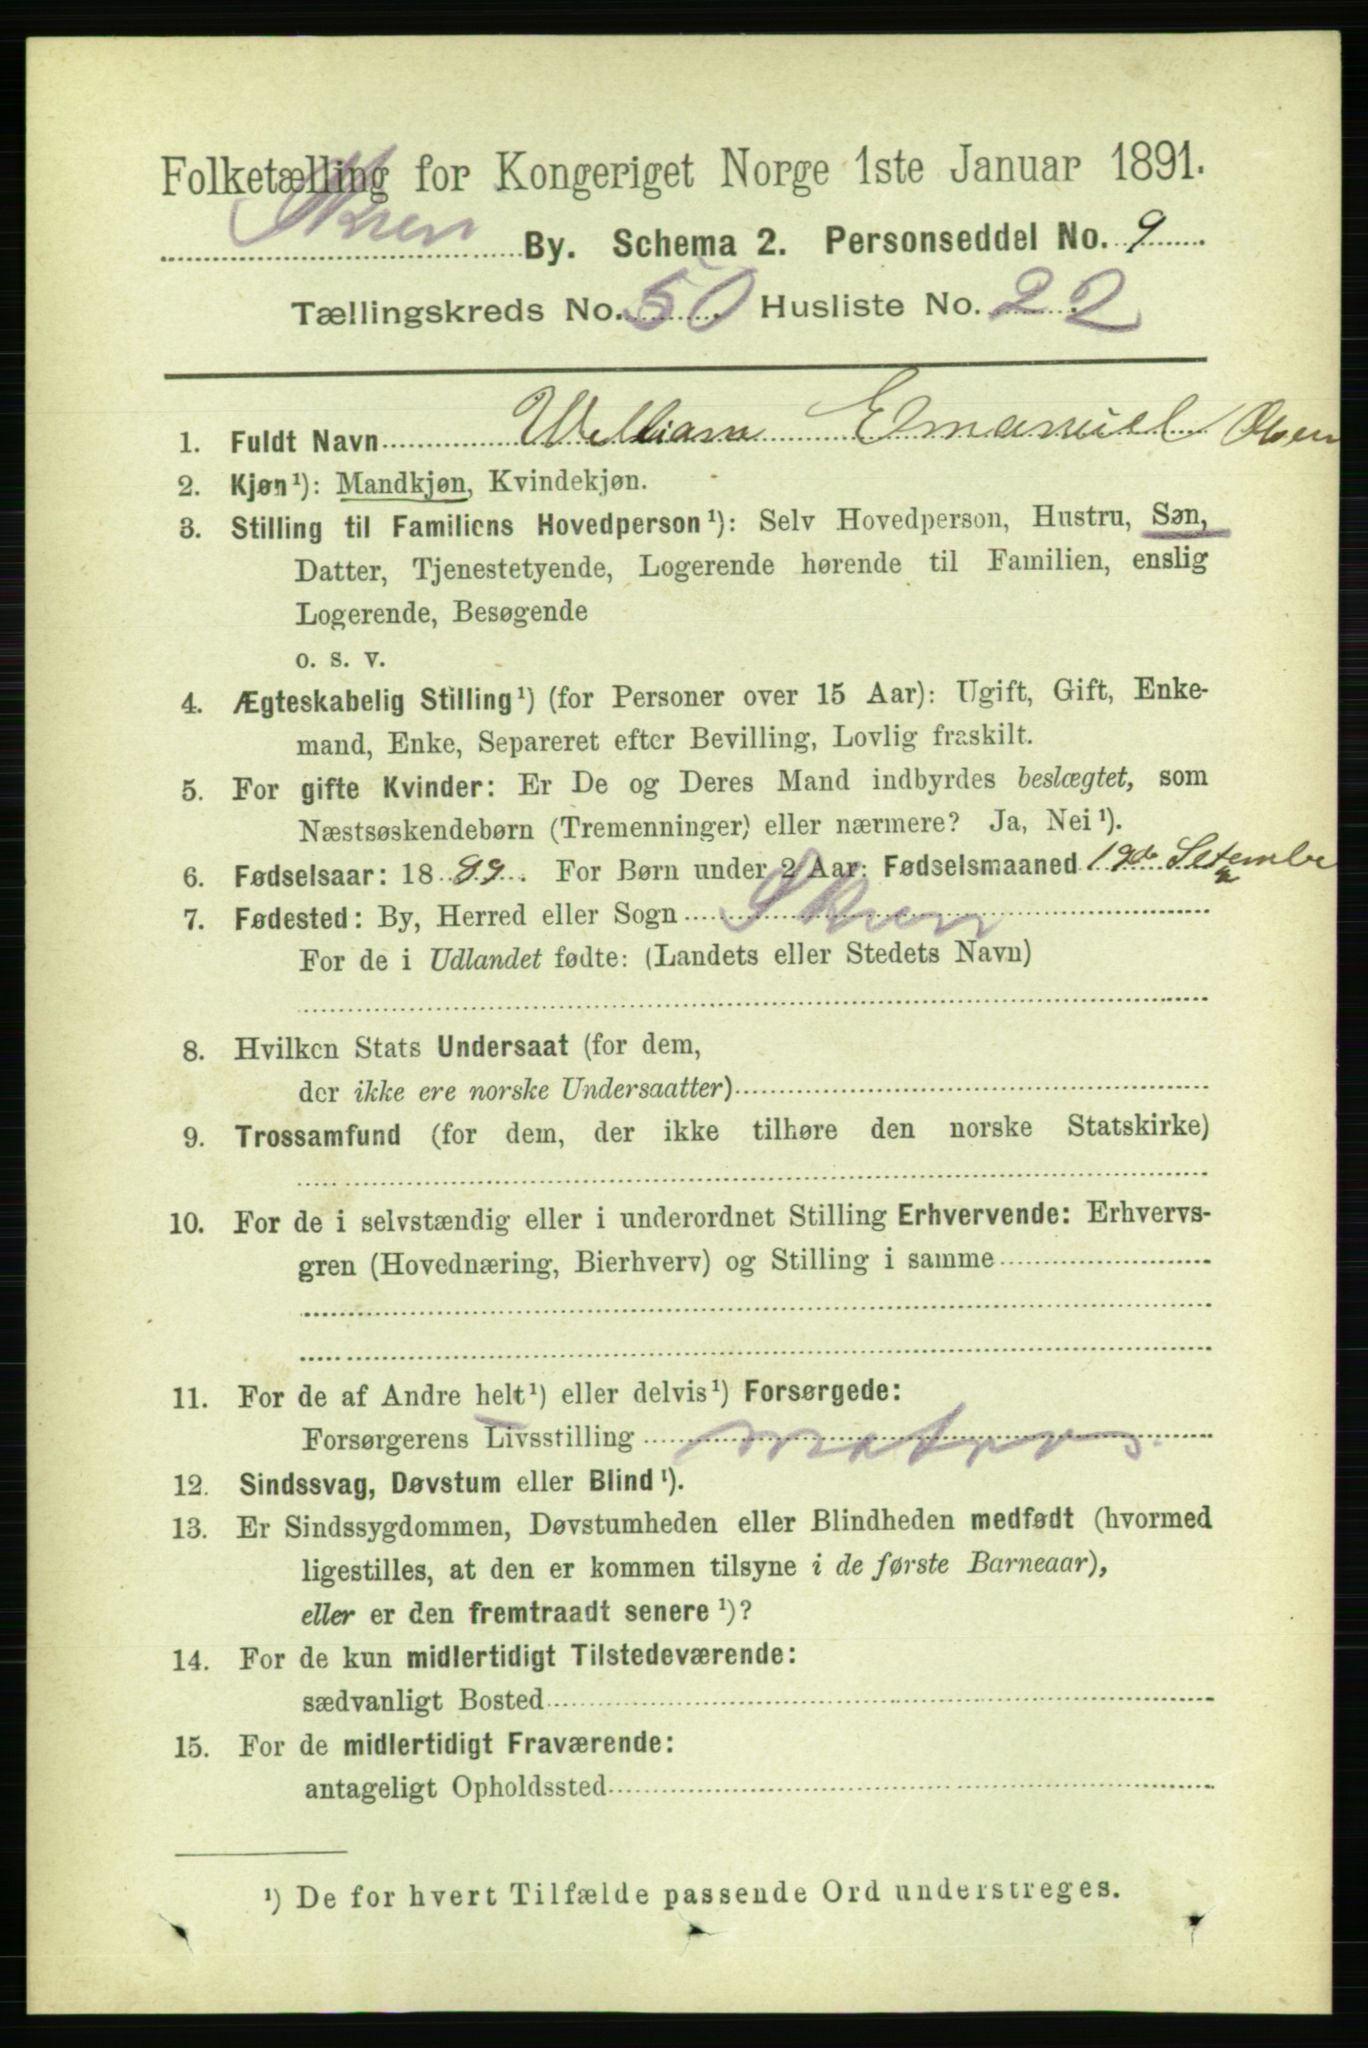 Folketælling for Kongeriget Norge 1ste Januar 1891.
Skien By. Schema 2. Personseddel No. 9
Tællingskreds No. 50 Husliste No. 22
1. Fuldt Navn William Emanuel Olsen
2. Kjøn¹): Mandkjøn, Kvindekjøn.
3. Stilling til Familiens Hovedperson¹): Selv Hovedperson, Hustru, Søn,
Datter, Tjenestetyende, Logerende hørende til Familien, enslig
Logerende, Besøgende
o. s. v.
4. Ægteskabelig Stilling¹) (for Personer over 15 Aar): Ugift, Gift, Enke-
mand, Enke, Separeret efter Bevilling, Lovlig fraskilt.
5. For gifte Kvinder: Er De og Deres Mand indbyrdes beslægtet, som
Næstsøskendebørn (Tremenninger) eller nærmere? Ja, Nei¹).
6. Fødselsaar: 1889. For Børn under 2 Aar: Fødselsmaaned 19de Setember
7. Fødested: By, Herred eller Sogn Skien
For de i Udlandet fødte: (Landets eller Stedets Navn)
8. Hvilken Stats Undersaat (for dem,
der ikke ere norske Undersaatter)
9. Trossamfund (for dem, der ikke tilhøre den norske Statskirke)
10. For de i selvstændig eller i underordnet Stilling Erhvervende: Erhvervs-
gren (Hovednæring, Bierhverv) og Stilling i samme
11. For de af Andre helt¹) eller delvis¹) Forsørgede:
Forsørgerens Livsstilling matros
12. Sindssvag, Døvstum eller Blind¹).
13. Er Sindssygdommen, Døvstumheden eller Blindheden medfødt (hvormed
ligestilles, at den er kommen tilsyne i de første Barneaar),
eller er den fremtraadt senere¹)?
14. For de kun midlertidigt Tilstedeværende:
sædvanligt Bosted
15. For de midlertidigt Fraværende:
antageligt Opholdssted
¹) De for hvert Tilfælde passende Ord understreges.